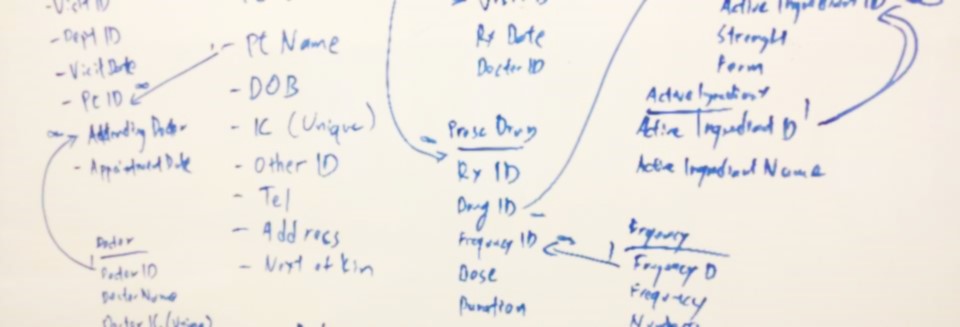 - Visit ID
- Dept ID
- Visit Date
- Pt ID
∞
Attending Doctor
- Appointment Date
Doctor
1
Doctor ID
Doctor Name
Doctor IC (Unique)
1
- Pt Name
- DOB
- IC (Unique)
- Other ID
- Tel
- Address
- Next of kin
Rx Date
Doctor ID
∞
Presc Drug
Rx ID
Drug ID
Frequency ID
∞
Dose
Duration
Active Ingredient ID
Strenght
Form
Active Ingredient
Active Ingredient ID
1
Active Ingredient Name
Frequency
1
Frequency ID
Frequency